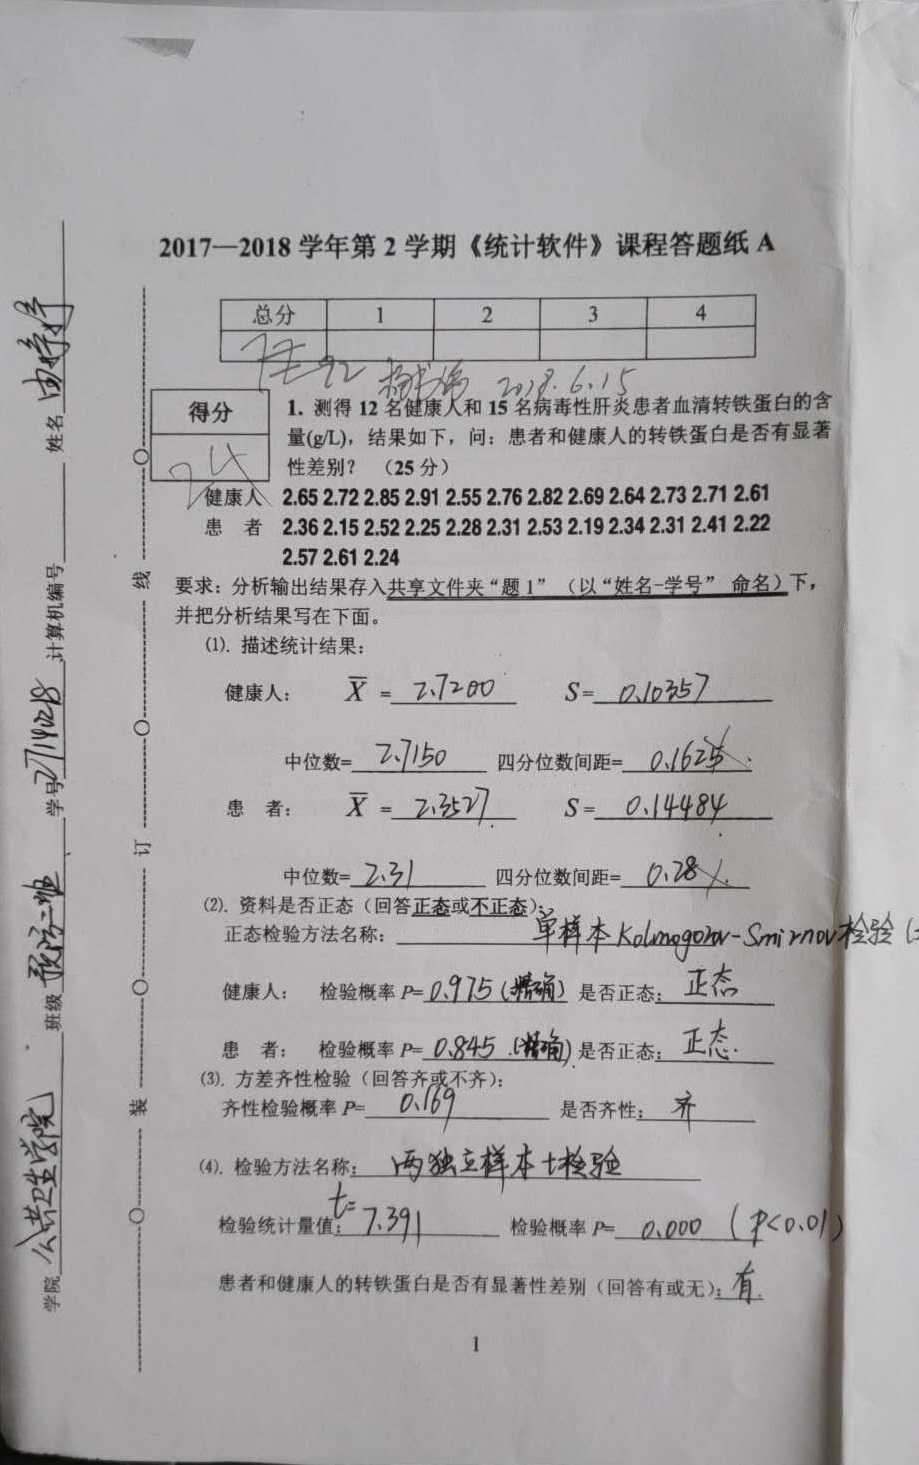 2017—2018 学年第 2 学期《统计软件》课程答题纸 A
总分 1 2 3 4
92
2018.6.15
得分
24
1. 测得 12 名健康人和 15 名病毒性肝炎患者血清转铁蛋白的含
量(g/L)，结果如下，问：患者和健康人的转铁蛋白是否有显著
性差别？ （25 分）
健康人 2.65 2.72 2.85 2.91 2.55 2.76 2.82 2.69 2.64 2.73 2.71 2.61
患 者 2.36 2.15 2.52 2.25 2.28 2.31 2.53 2.19 2.34 2.31 2.41 2.22
2.57 2.61 2.24
要求：分析输出结果存入共享文件夹“题 1”（以“姓名-学号” 命名）下，
并把分析结果写在下面。
⑴. 描述统计结果：
健康人： X̄ = 2.7200 S= 0.10357
中位数= 2.7150 四分位数间距= 0.1625
患 者： X̄ = 2.3527 S= 0.14484
中位数= 2.31 四分位数间距= 0.28
⑵. 资料是否正态（回答正态或不正态）：
正态检验方法名称： 单样本Kolmogorov-Smirnov检验
健康人： 检验概率 P= 0.975 (精确) 是否正态： 正态
患 者： 检验概率 P= 0.845 (精确) 是否正态： 正态.
⑶. 方差齐性检验（回答齐或不齐）：
齐性检验概率 P= 0.169 是否齐性： 齐
⑷. 检验方法名称： 两独立样本t检验
检验统计量值： t= 7.391 检验概率 P= 0.000 (P<0.01)
患者和健康人的转铁蛋白是否有显著性差别（回答有或无）： 有.
1
学院 公共卫生学院 班级 学号 27140218 计算机编号 姓名
装 订 线